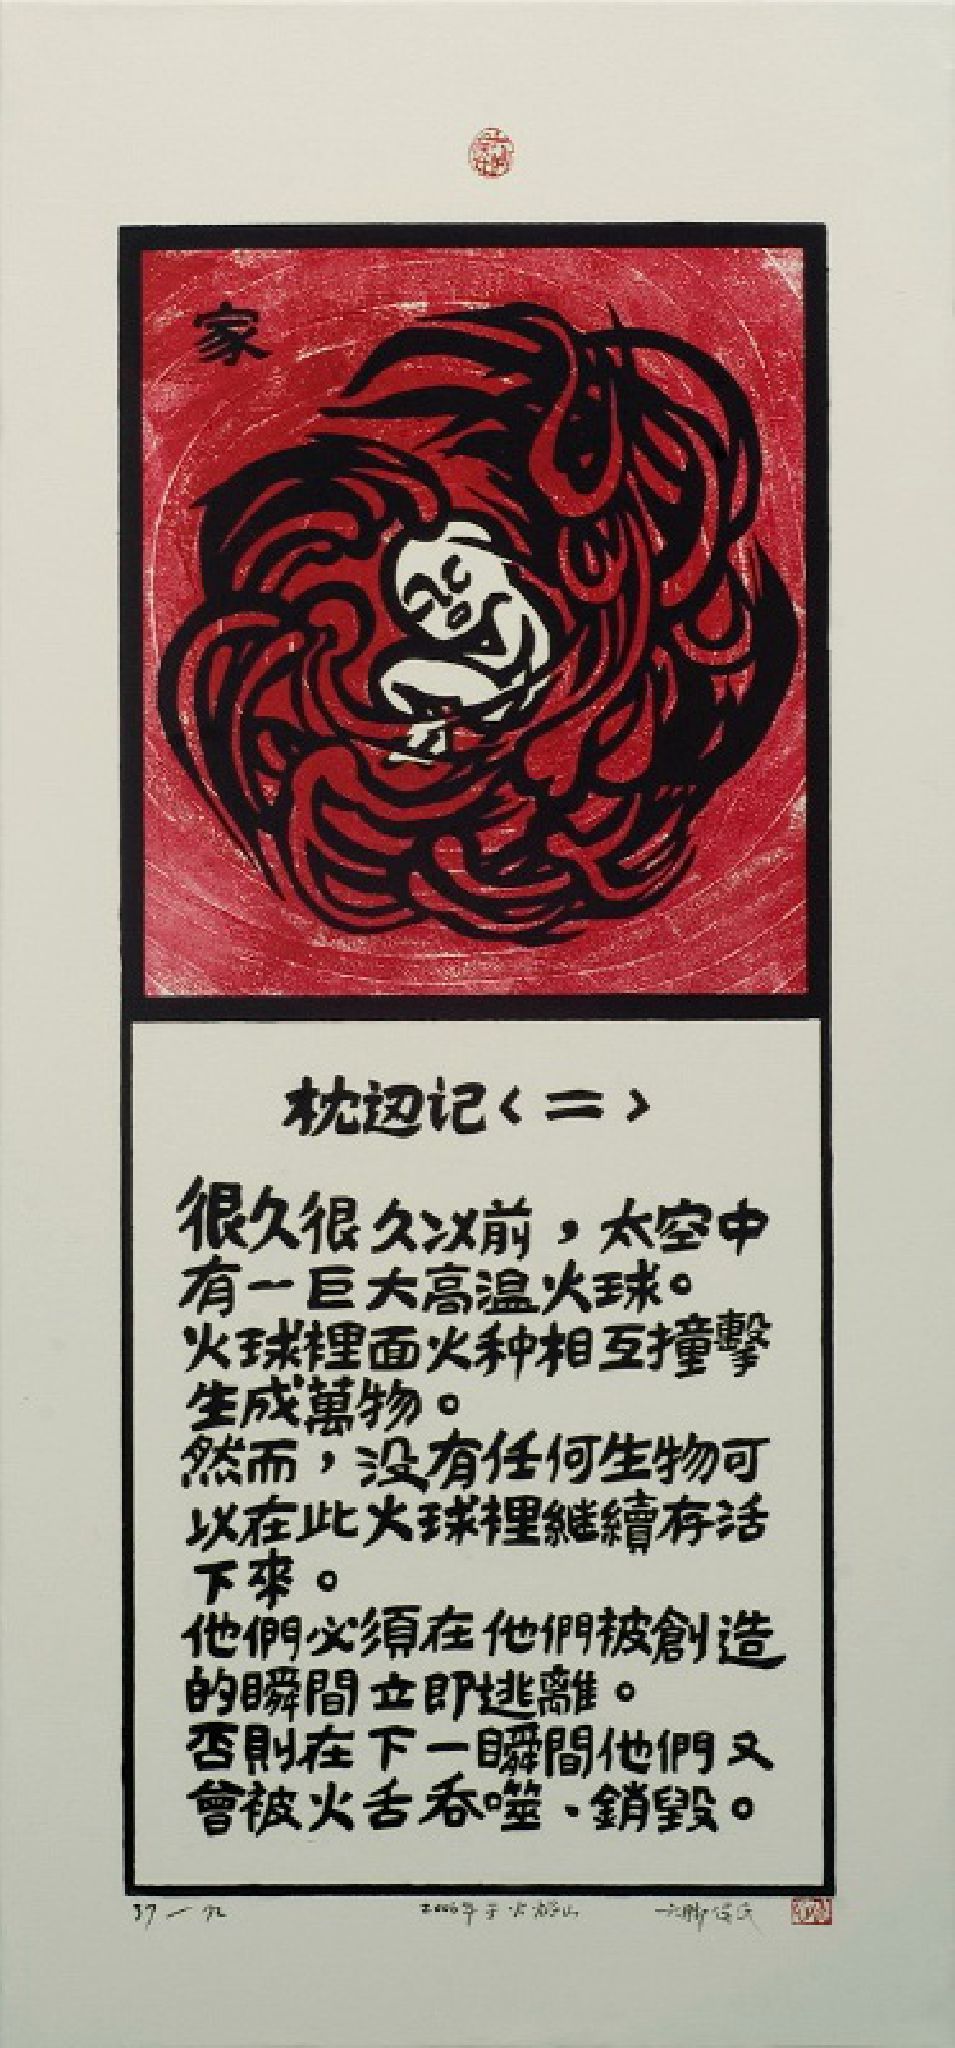 家
枕边记〈二〉
很久很久以前，太空中
有一巨大高温火球。
火球裡面火种相互撞擊
生成萬物。
然而，没有任何生物可
以在此火球裡繼續存活
下來。
他們必須在他們被創造
的瞬間立即逃離。
否則在下一瞬間他們又
會被火舌吞噬、銷毀。
37一92
2006年于火焰山
六脚侯氏